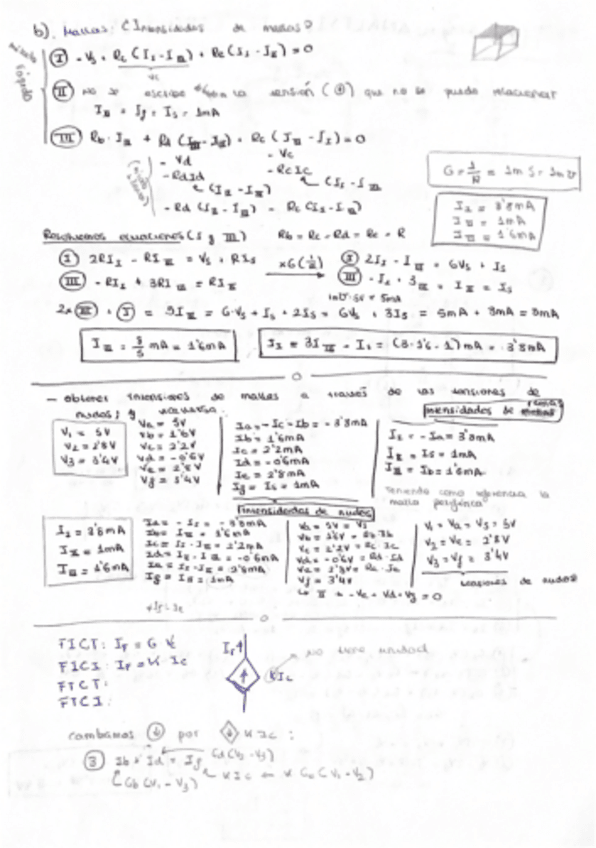 b). Mallas: (Intensidades de mallas)
método rápido
Ⓘ - Vs + Rc (I_I - I_III) + Re (I_I - I_II) = 0
Vc
Ⓘ Ⓘ no se escribe la tensión que no se puede relacionar
I_II = Ig = Is = 1mA
(III) Rb · I_III + Rd (I_III - I_II) + Rc (I_III - I_I) = 0
- Vd - Vc
- RdId - RcIc
(I_II - I_III) (I_I - I_III)
- Rd (I_II - I_III) - Rc (I_I - I_III)
G = 1/R = 1mS = 1m℧
I_I = 3'8mA
I_II = 1mA
I_III = 1'6mA
Resolvemos ecuaciones (I y III) Rb = Rc = Rd = Re = R
(I) 2RI_I - RI_III = Vs + RIs xG(1/R) (I) 2I_I - I_III = GVs + Is
(III) - RI_I + 3RI_III = RI_II (III) - I_I + 3I_III = I_II = Is
1m℧·5V = 5mA
2x(III) + (I) = 5I_III = G·Vs + Is + 2Is = GVs + 3Is = 5mA + 3mA = 8mA
I_III = 8/5 mA = 1'6mA
I_I = 3I_III - Is = (3·1'6 - 1)mA = 3'8mA
- Obtener intensidades de mallas a través de las tensiones de nudos; y viceversa.
intensidades de ramas
V1 = 5V
V2 = 2'8V
V3 = 3'4V
Va = 5V
Vb = 1'6V
Vc = 2'2V
Vd = -0'6V
Ve = 2'8V
Vg = 3'4V
Ia = -Ic - Ib = -3'8mA
Ib = 1'6mA
Ic = 2'2mA
Id = -0'6mA
Ie = 2'8mA
Ig = Is = 1mA
I_I = -Ia = 3'8mA
I_II = Is = 1mA
I_III = Ib = 1'6mA
Teniendo como referencia la malla periférica
Intensidades de nudos
I_I = 3'8mA
I_II = 1mA
I_III = 1'6mA
Ia = -I_I = -3'8mA
Ib = I_III = 1'6mA
Ic = I_I - I_III = 2'2mA
Id = I_II - I_III = -0'6mA
Ie = I_I - I_II = 2'8mA
Ig = I_II = 1mA
Va = 5V = Vs
Vb = 1'6V = Rb·Ib
Vc = 2'2V = Rc·Ic
Vd = -0'6V = Rd·Id
Ve = 2'8V = Re·Ie
Vg = 3'4V
↳ II → - Ve + Vd + Vg = 0
V1 = Va = Vs = 5V
V2 = Ve = 2'8V
V3 = Vg = 3'4V
tensiones de nudos
FICT: IF = G Vc
FICI: IF = K Ic
FTCT:
FTCI:
IF ↑
KIc
no tiene unidad
cambiamos por K Ic :
(3) Ib + Id = Ig
Gd (V2 - V3)
K Ic = K Gc (V1 - V2)
Gb (V1 - V3)